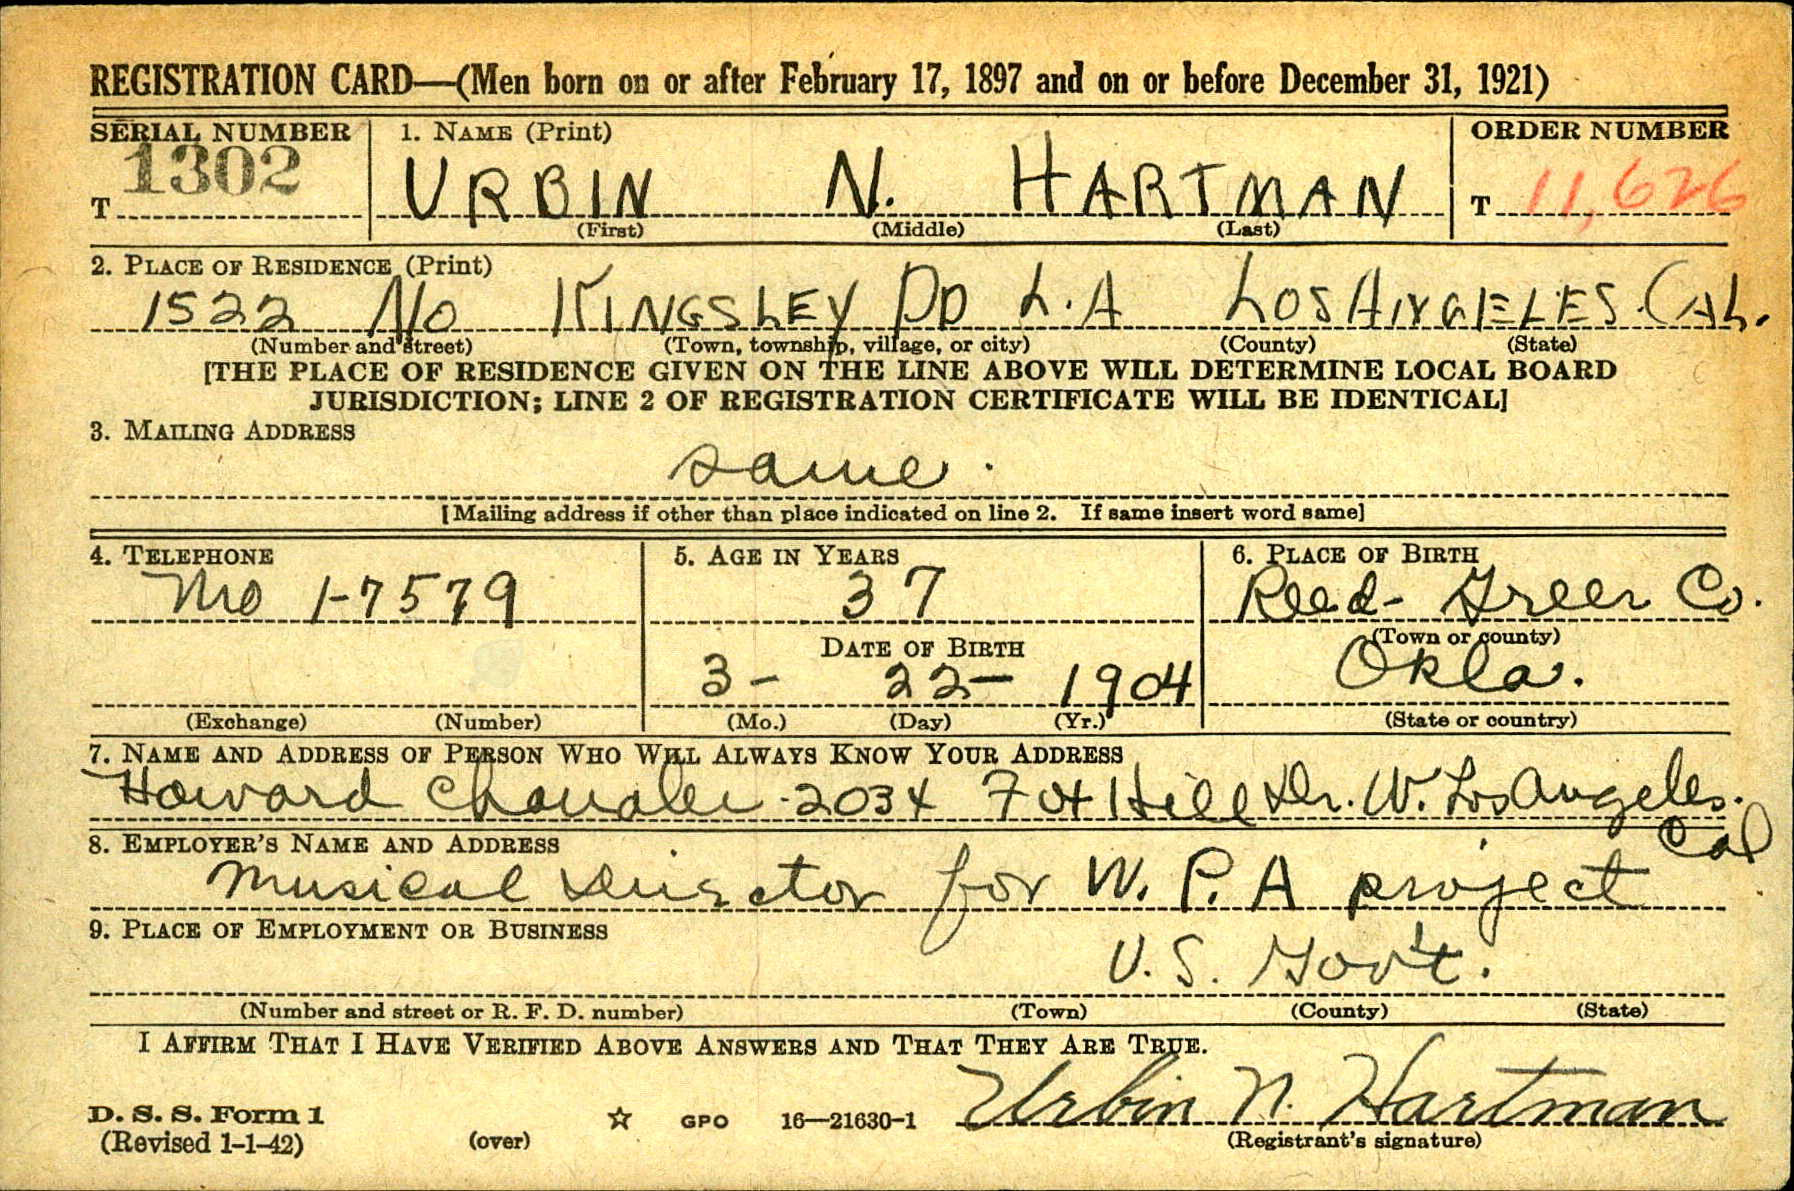 REGISTRATION CARD—(Men born on or after February 17, 1897 and on or before December 31, 1921)
SERIAL NUMBER 1. NAME (Print) ORDER NUMBER
T 1302 URBIN N. HARTMAN T 11,626
(First) (Middle) (Last)
2. PLACE OF RESIDENCE (Print)
1522 No KINGSLEY DD L.A LOS ANGELES. CAL.
(Number and street) (Town, township, village, or city) (County) (State)
[THE PLACE OF RESIDENCE GIVEN ON THE LINE ABOVE WILL DETERMINE LOCAL BOARD
JURISDICTION; LINE 2 OF REGISTRATION CERTIFICATE WILL BE IDENTICAL]
3. MAILING ADDRESS
same.
[Mailing address if other than place indicated on line 2. If same insert word same]
4. TELEPHONE 5. AGE IN YEARS 6. PLACE OF BIRTH
Mo 1-7579 37 Reed- Greer Co.
DATE OF BIRTH (Town or county)
3- 22- 1904 Okla.
(Exchange) (Number) (Mo.) (Day) (Yr.) (State or country)
7. NAME AND ADDRESS OF PERSON WHO WILL ALWAYS KNOW YOUR ADDRESS
Howard Chandler - 2034 Fox Hill Dr. W. Los Angeles.
Cal
8. EMPLOYER'S NAME AND ADDRESS
Musical Director for W.P.A project
9. PLACE OF EMPLOYMENT OR BUSINESS
U.S. Gov't.
(Number and street or R. F. D. number) (Town) (County) (State)
I AFFIRM THAT I HAVE VERIFIED ABOVE ANSWERS AND THAT THEY ARE TRUE.
Urbin N. Hartman
D. S. S. Form 1 ☆ GPO 16—21630-1
(Revised 1-1-42) (over) (Registrant's signature)